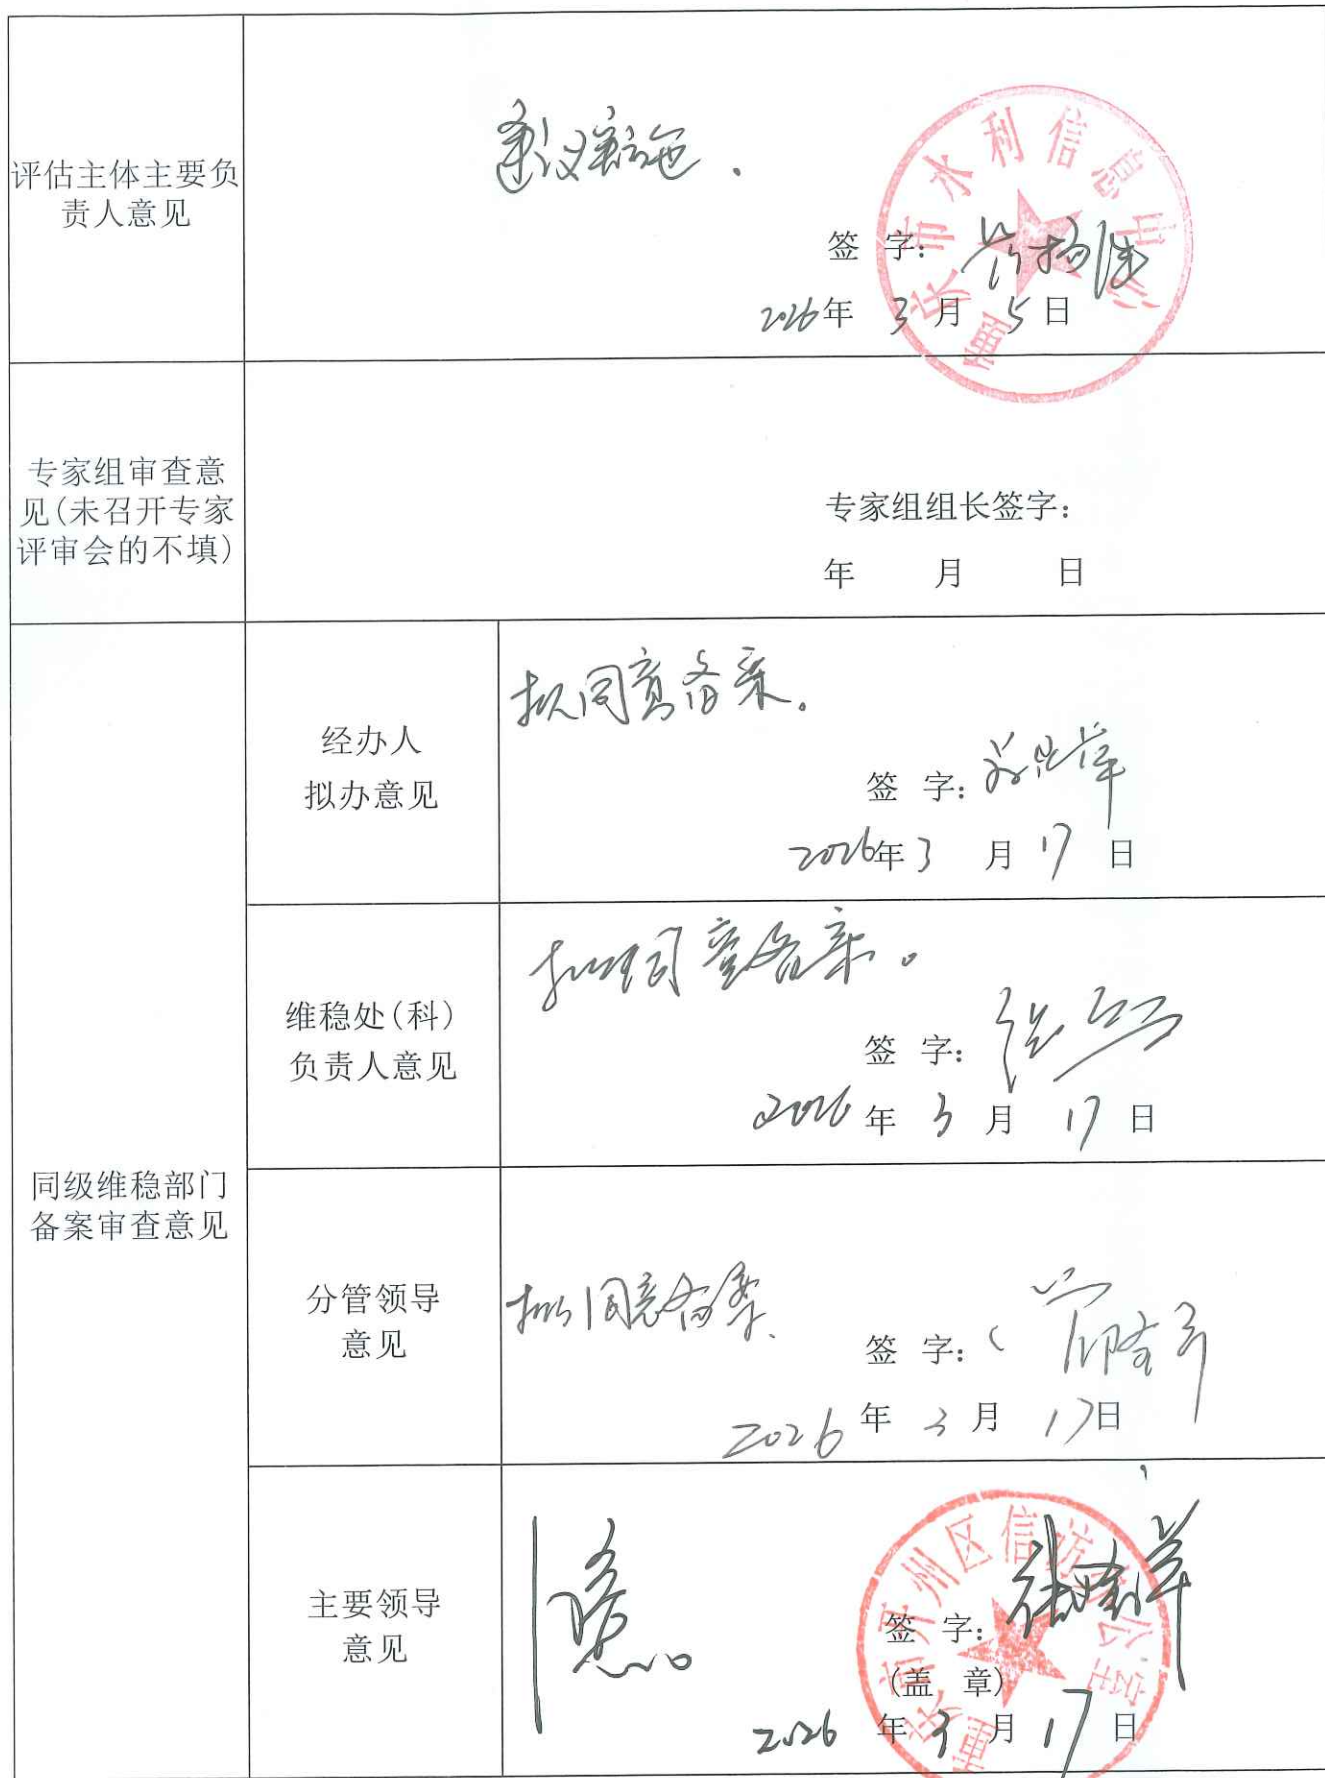 评估主体主要负
责人意见
建议实施.
重庆市水利信息中心
签 字:
2026年 3月 5日
专家组审查意
见(未召开专家
评审会的不填)
专家组组长签字:
年 月 日
同级维稳部门
备案审查意见
经办人
拟办意见
拟同意备案。
签 字:
2026年3 月17 日
维稳处(科)
负责人意见
拟同意备案。
签 字:
2026年 3月 17日
分管领导
意见
拟同意备案.
签 字:
2026年 3月 17日
主要领导
意见
同意
重庆市开州区信访办公室
签 字:
(盖 章)
2026 年3月17日